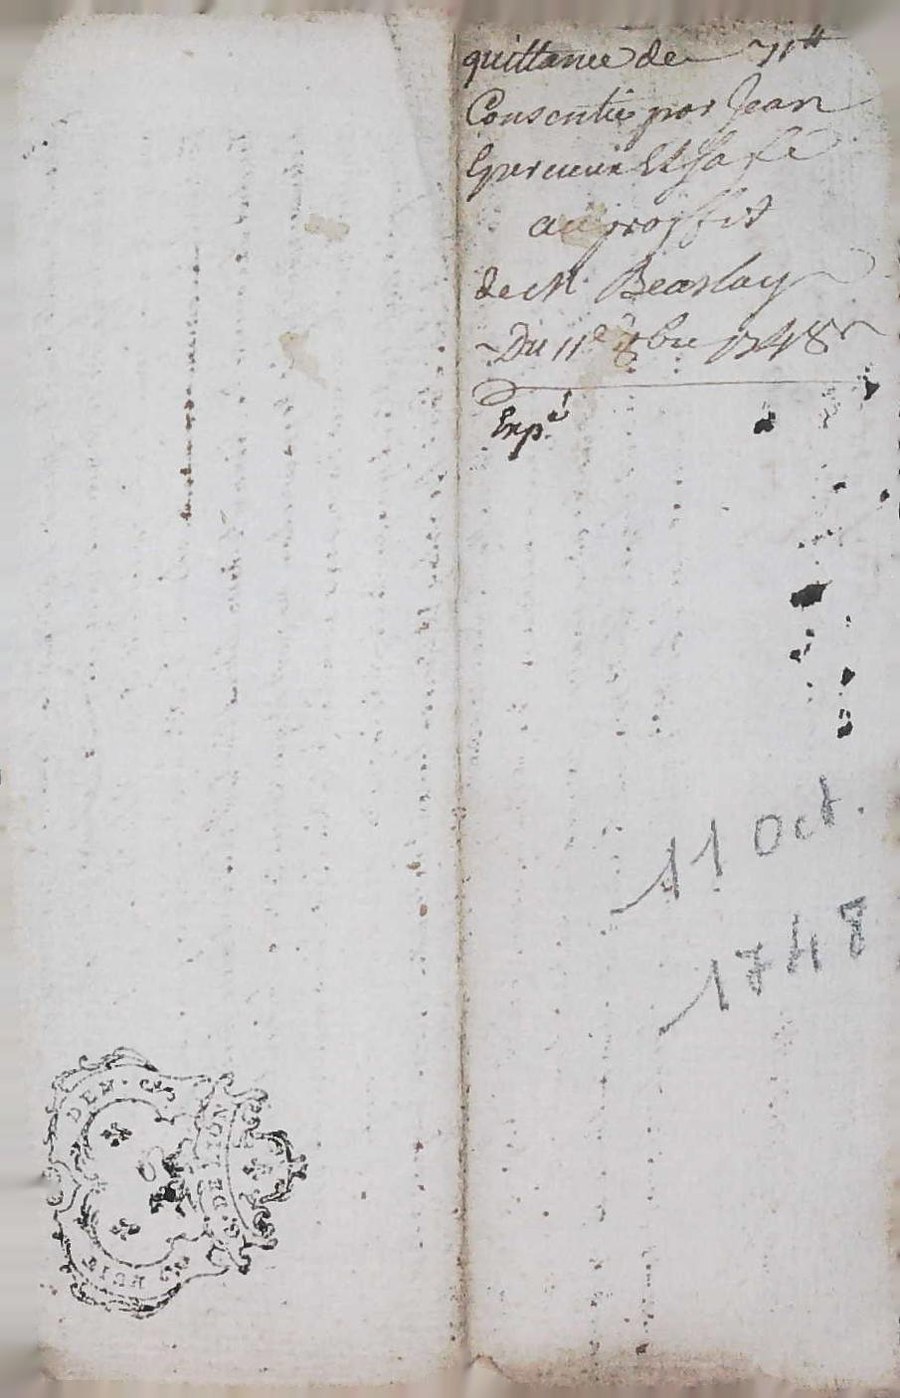 quittance de 71tt
Consentie par Jean
Et sa fe
au proffit
de Mr Beaslay
Du 11e 8bre 1748
Expé
11 Oct.
1748
G. DE LYON
HUIT DEN.